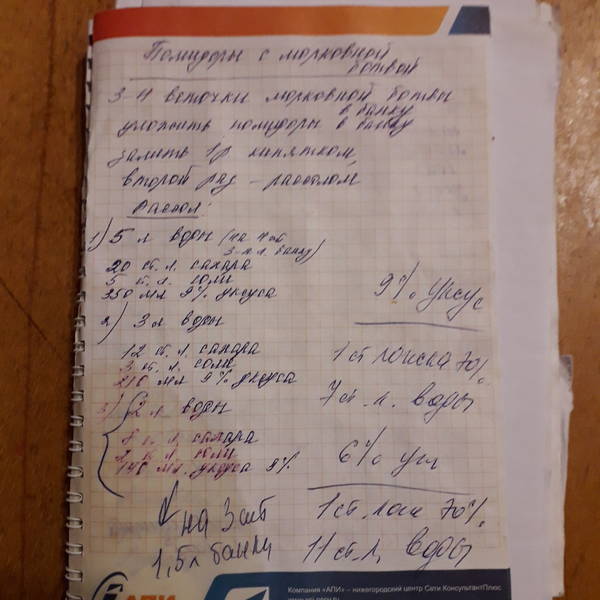 Помидоры с морковной
ботвой
3-4 веточки морковной ботвы
в банку
уложить помидоры в банку
залить 1р кипятком,
второй раз - рассолом,
Рассол:
1) 5 л воды (на 4
3-х л. банки)
20 ст. л. сахара
5 ст. л. соли
350 мл 9% уксуса
2) 3 л воды
12 ст. л. сахара
3 ст. л. соли
210 мл 9% уксуса
3) 2 л воды
8 ст. л. сахара
2 ст. л. соли
140 мл. уксуса 9%
на 3 шт
1,5 л банки
9% уксус
1 ст ложка 70%
7 ст. л. воды
6% укс
1 ст. лож 70%
11 ст. л. воды
АПИ
Компания «АПИ» – нижегородский центр Сети КонсультантПлюс